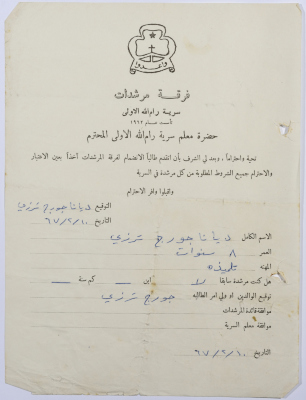 واعدوا
فرقة مرشدات
سرية رام الله الاولى
تأسست عام ١٩٢٢
حضرة معلم سرية رام الله الاولى المحترم
تحية واحتراما ، وبعد لي الشرف بأن اتقدم طالباً الانضمام لفرقة المرشدات آخذاً بعين الاعتبار
والاحترام جميع الشروط المطلوبة من كل مرشدة في السرية
واقبلوا وافر الاحترام
التوقيع ديانا جورج ترزي
التاريخ ٦٧/٢/١٠
الاسم الكامل ديانا جورج ترزي
العمر ٨ سنوات
المهنة تلميذه
هل كنت مرشدة سابقا لا اين — كم سنة —
توقيع الوالدين او ولي امر الطالبه جورج ترزي
موافقة قائدة المرشدات
موافقة معلم السرية
التاريخ ٦٧/٢/١٠